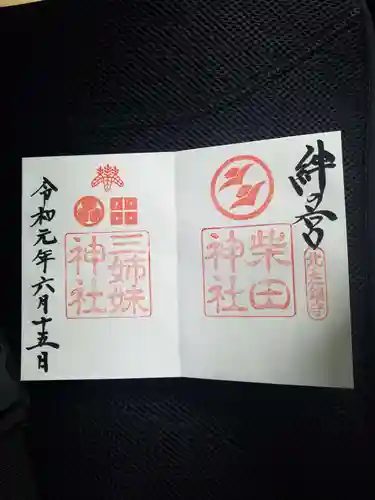 絆の宮
北之鎮守
柴田神社
三姉妹神社
令和元年六月十五日